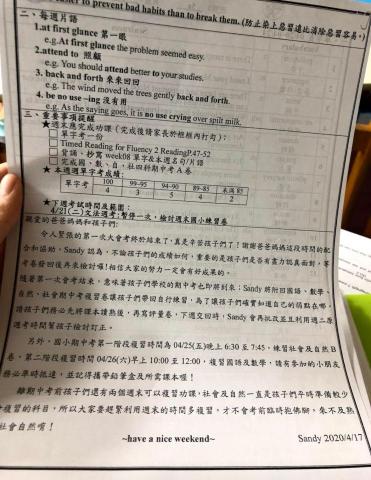 easier to prevent bad habits than to break them. (防止染上惡習遠比消除惡習容易。)
二、每週片語
1.at first glance 第一眼
e.g.At first glance the problem seemed easy.
2.attend to 照顧
e.g. You should attend better to your studies.
3. back and forth 來來回回
e.g. The wind moved the trees gently back and forth.
4. be no use –ing 沒有用
e.g. As the saying goes, it is no use crying over spilt milk.
三、重要事項提醒
★週末應完成功課 (完成後請家長於框框內打勾):
單字考一份
Timed Reading for Fluency 2 ReadingP.47-52
背誦、抄寫 week08 單字&本週名句/片語
完成國、數、自、社四科期中考A卷
★ 本週週單字考成績:
單字考 100 99-95 94-90 89-85 未滿85
4 3 5 4 2
★下週考試時間及範圍:
4/21(二)文法週考:暫停一次,檢討週末國小練習卷
親愛的爸爸媽媽和孩子們:
令人緊張的第一次大會考終於結束了,真是辛苦孩子們了!謝謝爸爸媽媽這段時間的配
合和協助。Sandy 認為,不論孩子們的成績如何,重要的是孩子們是否有盡力認真面對,等
考卷發回後再來檢討囉!相信大家的努力一定會有好成果的。
隨著第一次會考結束,意味著孩子們學校的期中考也即將到來;Sandy 將附回國語、數學、
自然、社會期中考複習卷讓孩子們帶回自行練習,為了讓孩子們確實知道自己的弱點在哪,
請孩子們務必先將課本讀熟後,再寫評量卷,下週交回時,Sandy 會再批改並且利用週二原
週考時間幫孩子檢討訂正。
另外,國小期中考第一階段複習時間為 04/25(五)晚上 6:30 至 7:45,練習社會及自然 B
卷,第二階段複習時間 04/26(六)早上 10:00 至 12:00,複習國語及數學,請有參加的小朋友
務必準時抵達,並記得攜帶鉛筆盒及所需課本喔!
離期中考前孩子們還有兩個週末可以複習功課,社會及自然一直是孩子們平時準備較少
複習的科目,所以大家要趕緊利用週末的時間多複習,才不會考前臨時抱佛腳,來不及熟
社會自然唷!
~have a nice weekend~ Sandy 2020/4/17